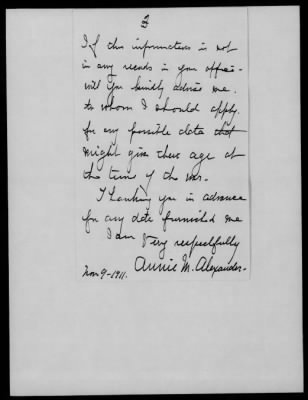 2
If this information is not
in any records in your office -
will you kindly advise me.
to whom I should apply.
for any possible data that
might give these age at
the time of the war.
Thanking you in advance
for any data furnished me
I am Very respectfully
Annie M. Alexander.
Nov 9 - 1911.